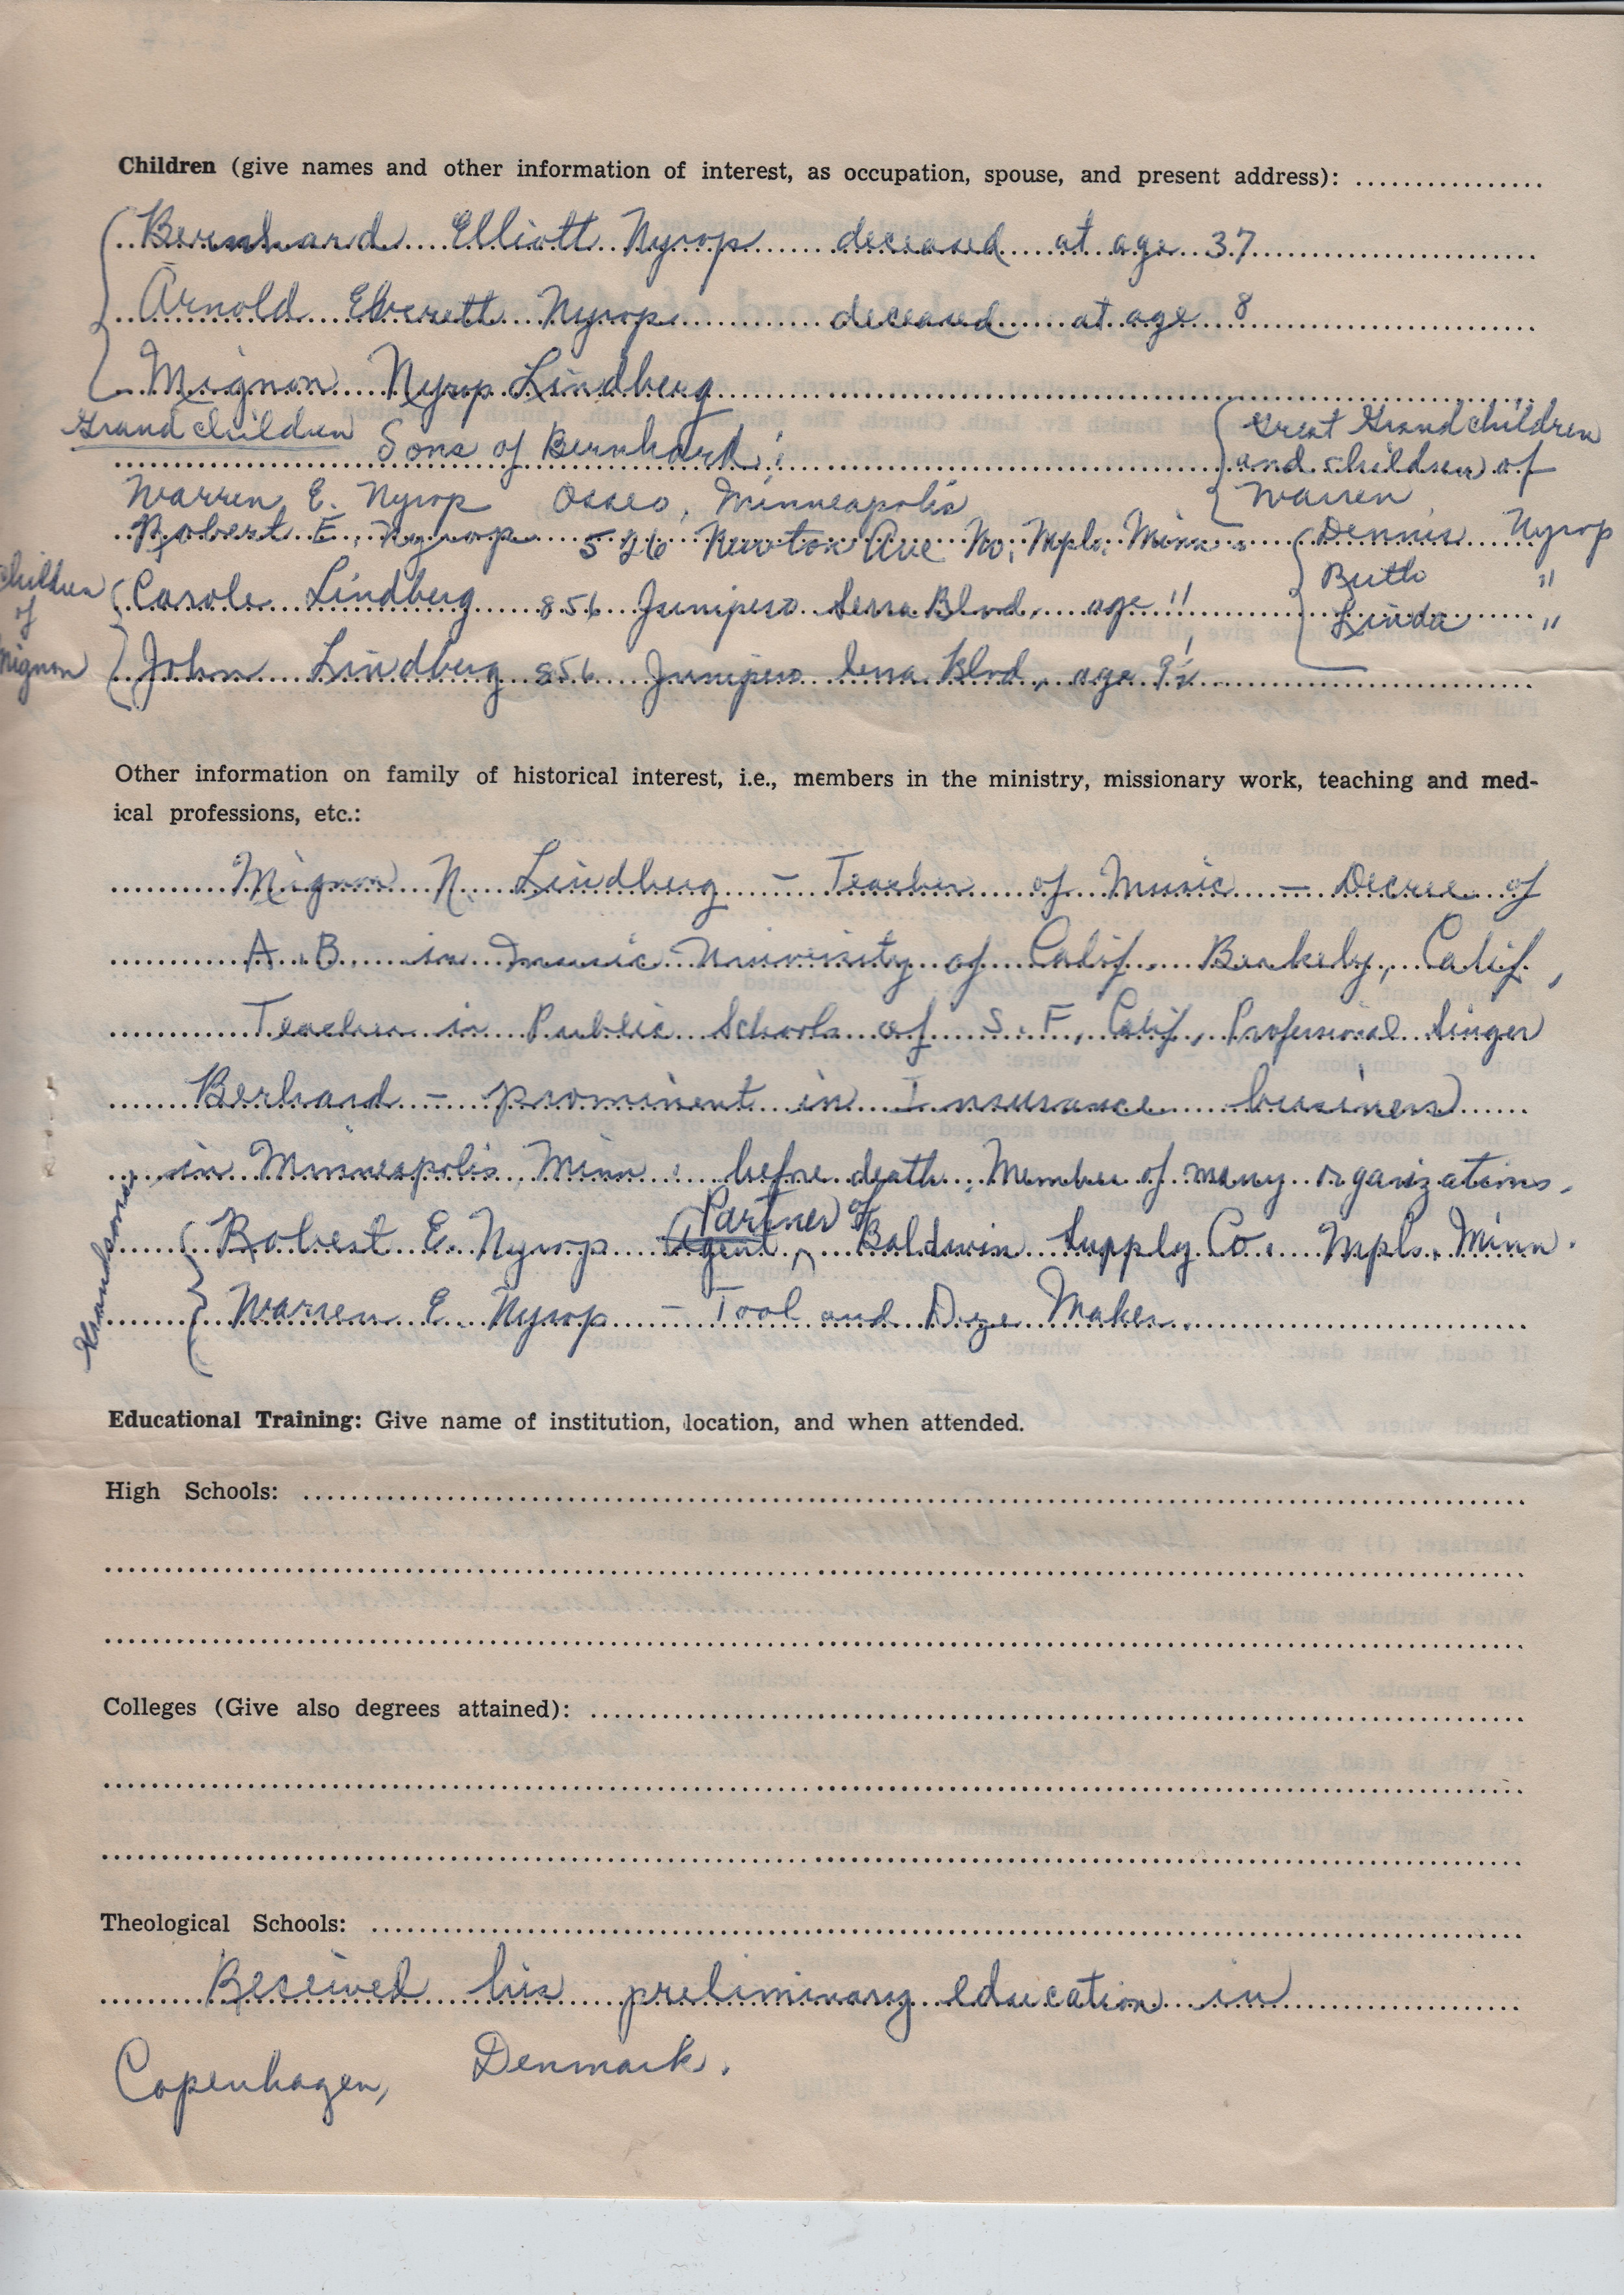 Children (give names and other information of interest, as occupation, spouse, and present address):
Bernhard Elliott Nyrop deceased at age 37
Arnold Everett Nyrop deceased at age 8
Mignon Nyrop Lindberg
Grandchildren Sons of Bernhard:
Warren E. Nyrop Osseo, Minneapolis
Robert E. Nyrop 526 Newton Ave No. Mpls. Minn.
Great Grandchildren
and children of
Warren
Dennis Nyrop
Ruth "
Linda "
Children
of
Mignon
Carole Lindberg 856 Junipero Serra Blvd. age 11
John Lindberg 856 Junipero Serra Blvd, age 9½
Other information on family of historical interest, i.e., members in the ministry, missionary work, teaching and med-
ical professions, etc.:
Mignon N. Lindberg – Teacher of Music – Decree of
A.B. in music University of Calif. Berkely, Calif,
Teacher in Public Schools of S.F, Calif, Professional Singer
Berhard – prominent in Insurance business
in Minneapolis, Minn. before death. Member of many organizations.
Grandsons
Partner of
Robert E. Nyrop Agent ^ Baldwin Supply Co. Mpls. Minn.
Warren E. Nyrop – Tool and Dye Maker.
Educational Training: Give name of institution, location, and when attended.
High Schools:
Colleges (Give also degrees attained):
Theological Schools:
Received his preliminary education in
Copenhagen, Denmark.